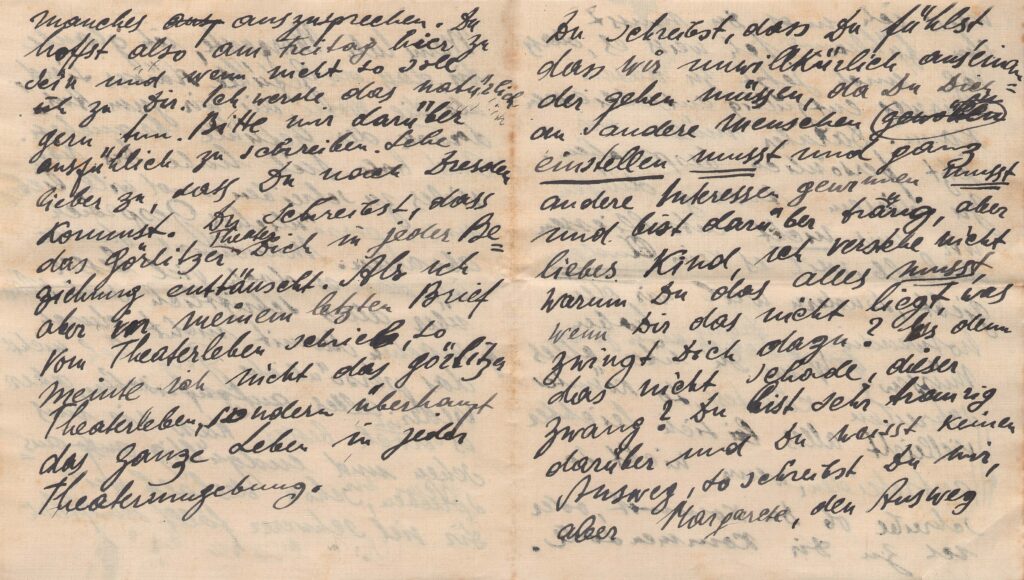 manches auszusprechen. Du
hoffst also am Freitag hier zu
sein und wenn nicht so soll
ich zu Dir. Ich werde das natürlich
gern tun. Bitte mir darüber
ausfühlich zu schreiben. Sehe
lieber zu, dass Du nach Dresden
kommst. Du schreibst, dass
das Görlitzer Theater Dich in jeder Be=
ziehung enttäuscht. Als ich
aber in meinem letzten Brief
vom Theaterleben schrieb, so
meinte ich nicht das görlitzer
Theaterleben, sondern überhaupt
das ganze Leben in jeder
Theaterumgebung.
Du schreibst, dass Du fühlst
dass wir unwillkürlich auseinan=
der gehen müssen, da Du Dich
an andere Menschen (gewöhnen
einstellen musst und ganz
andere Interessen gewinnen musst
und bist darüber trarig, aber
liebes Kind, ich verstehe nicht
warum Du das alles musst,
wenn Dir das nicht liegt, was
zwingt Dich dazu? Is denn
das nicht schade, dieser
zwang? Du bist sehr traurig
darüber und Du weisst keinen
Ausweg, so schreibst Du mir,
aber Margarete, den Ausweg